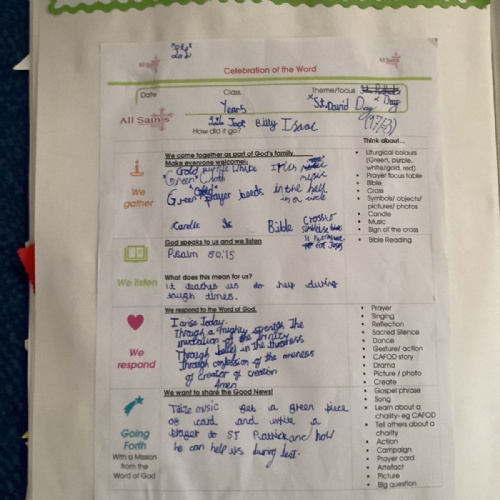 Celebration of the Word
All Saints
Date
Class
Theme/focus
Year 5
St. David Day
(17/3)
All Saints
Billy Isaac
How did it go?
Think about...
We come together as part of God's family.
Make everyone welcome:
Gold purple white
music
Green cloth
Green prayer beads in the hall
in a circle
Candle
Bible
for Jesus
We gather
Liturgical colours
(Green, purple,
white/gold, red)
Prayer focus table
Bible
Cross
Symbols/ objects/
pictures/ photos
Candle
Music
Sign of the cross
God speaks to us and we listen
Psalm 50:15
What does this mean for us?
it teaches us to help during
tough times.
We listen
Bible Reading
We respond to the Word of God.
I arise today.
Through a mighty strength the
invocation of the trinity
Through belief in the threeness
Through confession of the oneness
of creator of creation
Amen
We respond
Prayer
Singing
Reflection
Sacred Silence
Dance
Gesture/ action
CAFOD story
Drama
Picture / photo
Create
We want to share the Good News!
music Get a green piece
of card and write a
prayer to ST Patrick and how
he can help us during lent.
Going Forth
With a Mission
from the
Word of God
Gospel phrase
Song
Learn about a
charity- eg CAFOD
Tell others about a
charity
Action
Campaign
Prayer card
Artefact
Picture
Big question